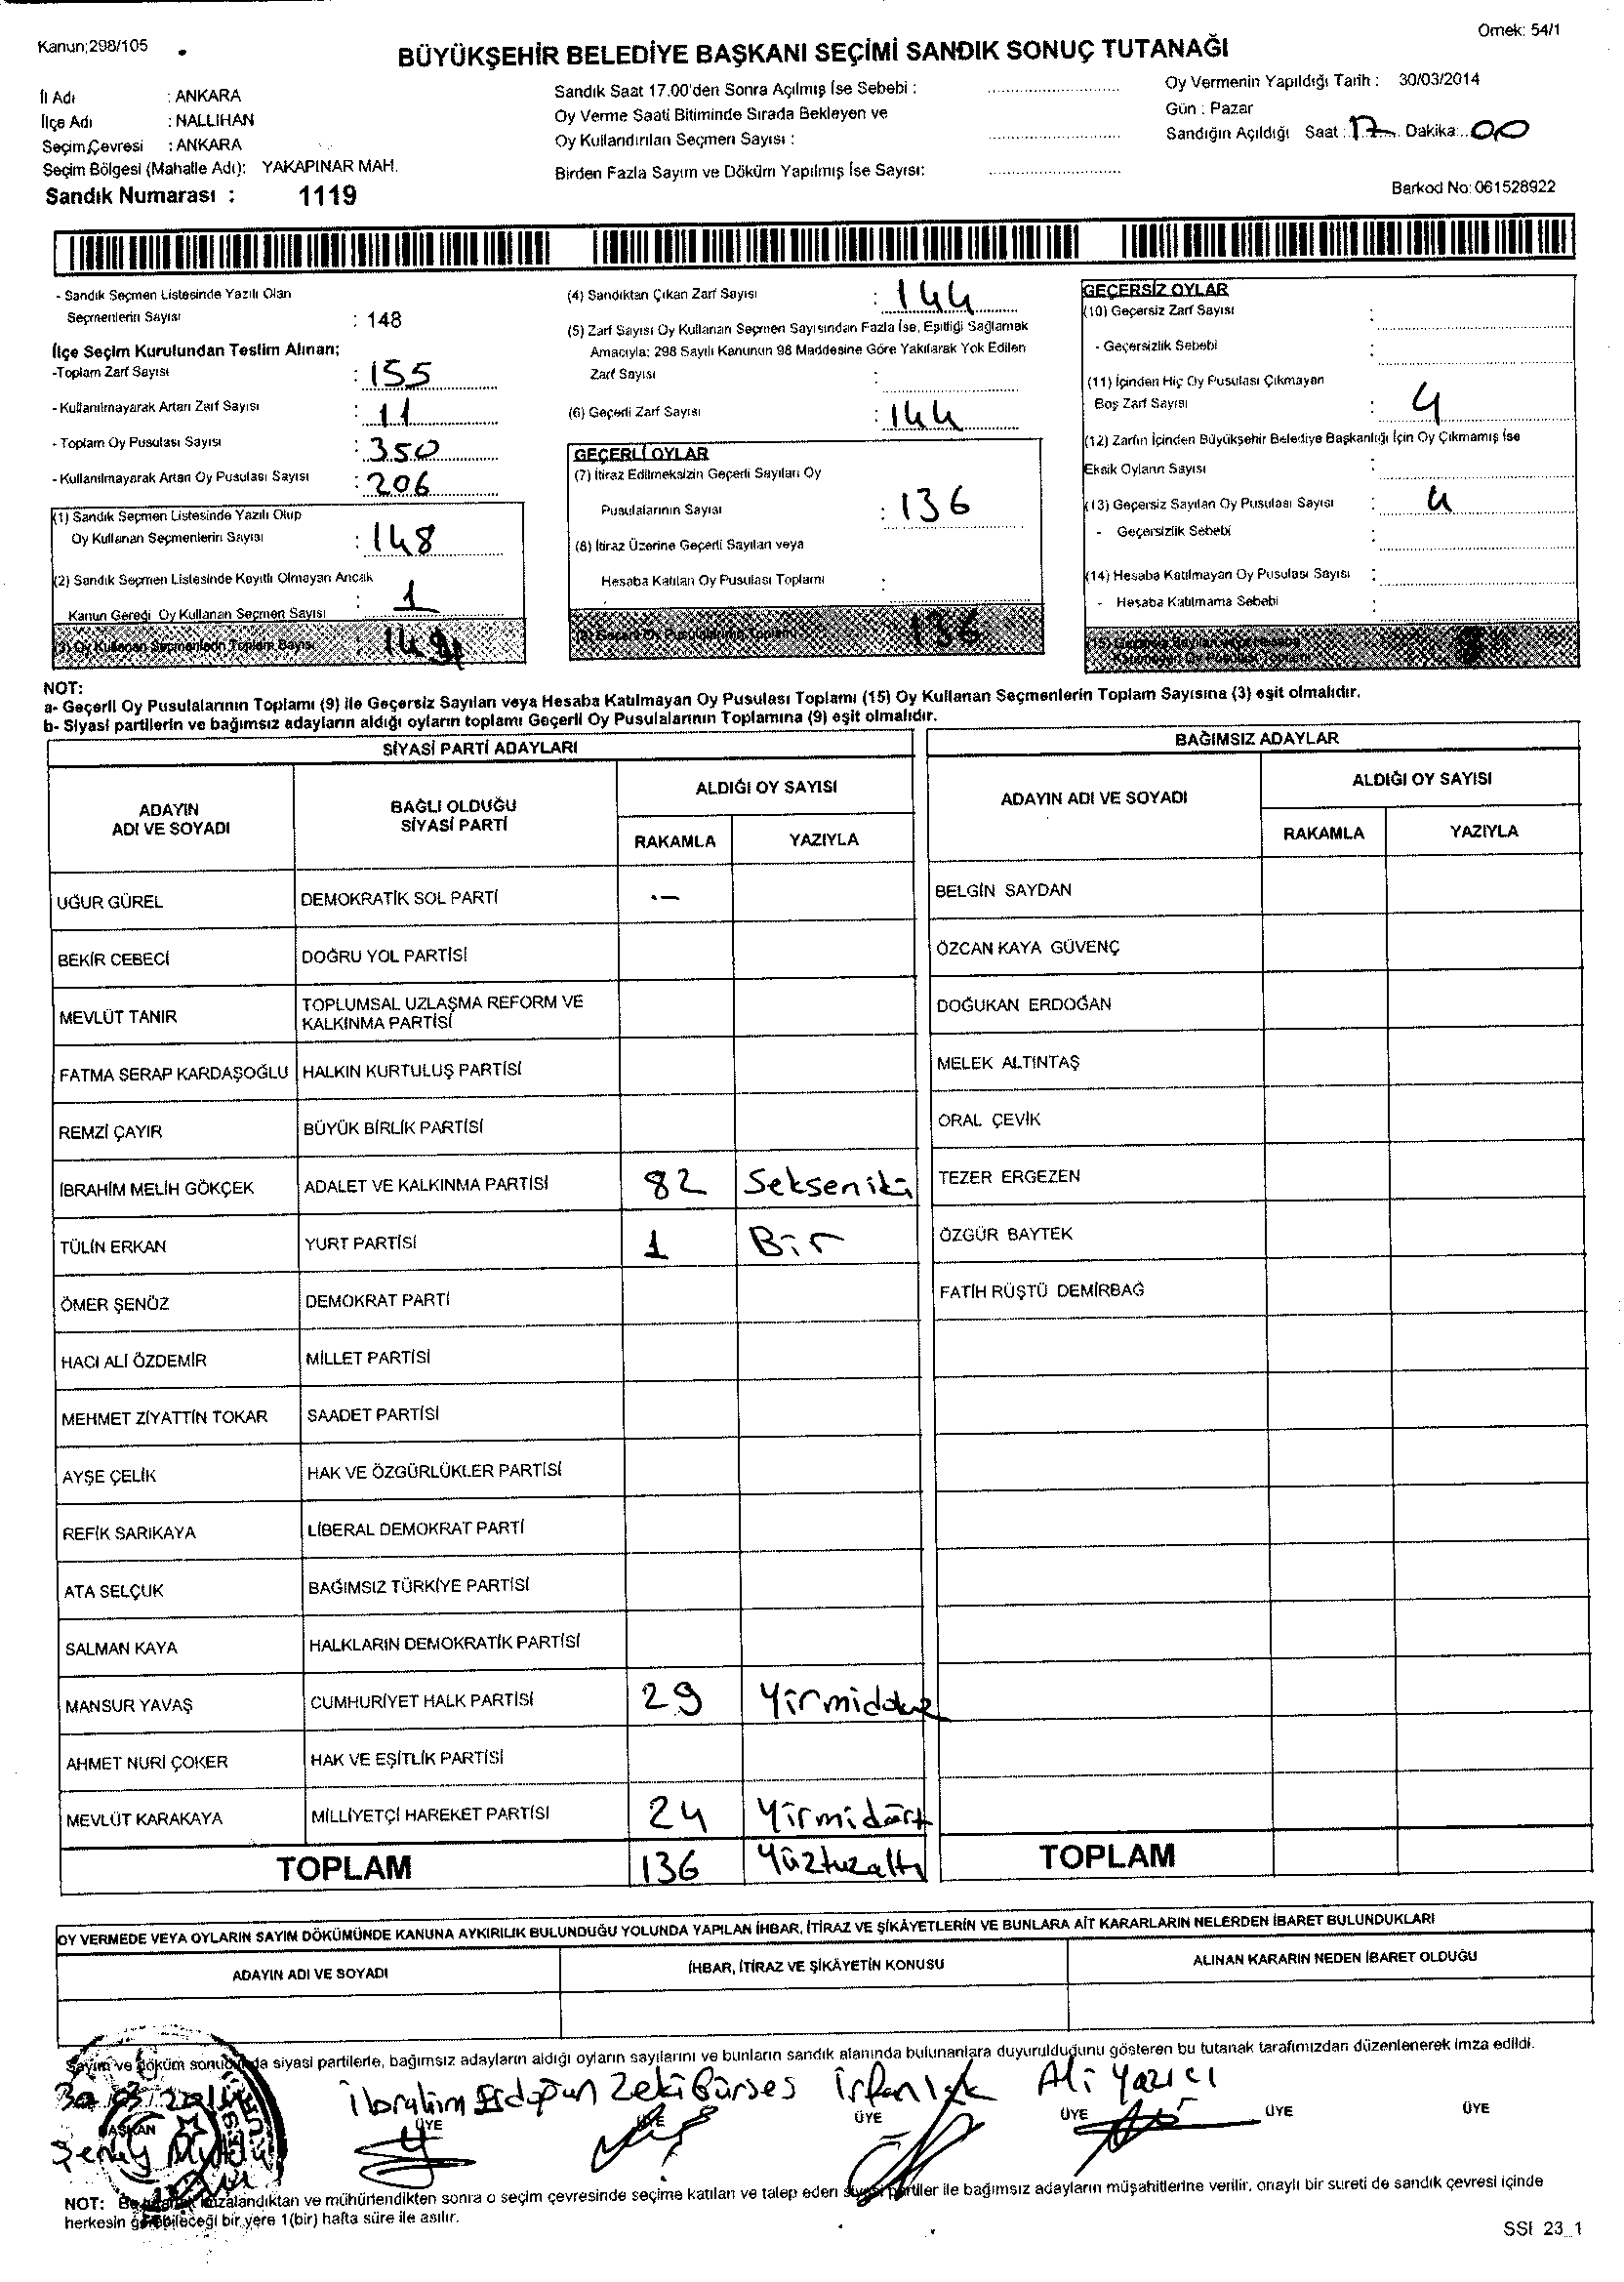 Kanun;298/105
Örnek: 54/1
BÜYÜKŞEHİR BELEDİYE BAŞKANI SEÇİMİ SANDIK SONUÇ TUTANAĞI
İl Adı : ANKARA
İlçe Adı : NALLIHAN
Seçim Çevresi : ANKARA
Seçim Bölgesi (Mahalle Adı): YAKAPINAR MAH.
Sandık Numarası : 1119
Sandık Saat 17.00'den Sonra Açılmış İse Sebebi :
Oy Verme Saati Bitiminde Sırada Bekleyen ve
Oy Kullandırılan Seçmen Sayısı :
Birden Fazla Sayım ve Döküm Yapılmış İse Sayısı:
Oy Vermenin Yapıldığı Tarih : 30/03/2014
Gün : Pazar
Sandığın Açıldığı Saat : 17 Dakika: 00
Barkod No: 061528922
- Sandık Seçmen Listesinde Yazılı Olan
Seçmenlerin Sayısı : 148
İlçe Seçim Kurulundan Teslim Alınan;
-Toplam Zarf Sayısı : 155
- Kullanılmayarak Artan Zarf Sayısı : 11
- Toplam Oy Pusulası Sayısı : 350
- Kullanılmayarak Artan Oy Pusulası Sayısı : 206
(1) Sandık Seçmen Listesinde Yazılı Olup
Oy Kullanan Seçmenlerin Sayısı : 148
(2) Sandık Seçmen Listesinde Kayıtlı Olmayan Ancak
Kanun Gereği Oy Kullanan Seçmen Sayısı : 1
(3) Oy Kullanan Seçmenlerin Toplam Sayısı :
(4) Sandıktan Çıkan Zarf Sayısı : 144
(5) Zarf Sayısı Oy Kullanan Seçmen Sayısından Fazla İse, Eşitliği Sağlamak
Amacıyla: 298 Sayılı Kanunun 98 Maddesine Göre Yakılarak Yok Edilen
Zarf Sayısı :
(6) Geçerli Zarf Sayısı : 144
GEÇERLİ OYLAR
(7) İtiraz Edilmeksizin Geçerli Sayılan Oy
Pusulalarının Sayısı : 136
(8) İtiraz Üzerine Geçerli Sayılan veya
Hesaba Katılan Oy Pusulası Toplamı :
(9) Geçerli Oy Pusulalarının Toplamı 136
GEÇERSİZ OYLAR
(10) Geçersiz Zarf Sayısı :
- Geçersizlik Sebebi :
(11) İçinden Hiç Oy Pusulası Çıkmayan
Boş Zarf Sayısı : 4
(12) Zarfın İçinden Büyükşehir Belediye Başkanlığı İçin Oy Çıkmamış İse
Eksik Oyların Sayısı :
(13) Geçersiz Sayılan Oy Pusulası Sayısı : 4
- Geçersizlik Sebebi :
(14) Hesaba Katılmayan Oy Pusulası Sayısı :
- Hesaba Katılmama Sebebi :
(15) Geçersiz Sayılan veya Hesaba
Katılmayan Oy Pusulası Toplamı
NOT:
a- Geçerli Oy Pusulalarının Toplamı (9) ile Geçersiz Sayılan veya Hesaba Katılmayan Oy Pusulası Toplamı (15) Oy Kullanan Seçmenlerin Toplam Sayısına (3) eşit olmalıdır.
b- Siyasi partilerin ve bağımsız adayların aldığı oyların toplamı Geçerli Oy Pusulalarının Toplamına (9) eşit olmalıdır.
SİYASİ PARTİ ADAYLARI
ADAYIN ADI VE SOYADI
BAĞLI OLDUĞU SİYASİ PARTİ
ALDIĞI OY SAYISI
RAKAMLA YAZIYLA
UĞUR GÜREL DEMOKRATİK SOL PARTİ -
BEKİR CEBECİ DOĞRU YOL PARTİSİ
MEVLÜT TANIR TOPLUMSAL UZLAŞMA REFORM VE KALKINMA PARTİSİ
FATMA SERAP KARDAŞOĞLU HALKIN KURTULUŞ PARTİSİ
REMZİ ÇAYIR BÜYÜK BİRLİK PARTİSİ
İBRAHİM MELİH GÖKÇEK ADALET VE KALKINMA PARTİSİ 82 Sekseniki
TÜLİN ERKAN YURT PARTİSİ 1 Bir
ÖMER ŞENÖZ DEMOKRAT PARTİ
HACI ALİ ÖZDEMİR MİLLET PARTİSİ
MEHMET ZİYATTİN TOKAR SAADET PARTİSİ
AYŞE ÇELİK HAK VE ÖZGÜRLÜKLER PARTİSİ
REFİK SARIKAYA LİBERAL DEMOKRAT PARTİ
ATA SELÇUK BAĞIMSIZ TÜRKİYE PARTİSİ
SALMAN KAYA HALKLARIN DEMOKRATİK PARTİSİ
MANSUR YAVAŞ CUMHURİYET HALK PARTİSİ 29 Yirmidokuz
AHMET NURİ ÇOKER HAK VE EŞİTLİK PARTİSİ
MEVLÜT KARAKAYA MİLLİYETÇİ HAREKET PARTİSİ 24 Yirmidört
TOPLAM 136 Yüztuzaltı
BAĞIMSIZ ADAYLAR
ADAYIN ADI VE SOYADI
ALDIĞI OY SAYISI
RAKAMLA YAZIYLA
BELGİN SAYDAN
ÖZCAN KAYA GÜVENÇ
DOĞUKAN ERDOĞAN
MELEK ALTINTAŞ
ORAL ÇEVİK
TEZER ERGEZEN
ÖZGÜR BAYTEK
FATİH RÜŞTÜ DEMİRBAĞ
TOPLAM
OY VERMEDE VEYA OYLARIN SAYIM DÖKÜMÜNDE KANUNA AYKIRILIK BULUNDUĞU YOLUNDA YAPILAN İHBAR, İTİRAZ VE ŞİKÂYETLERİN VE BUNLARA AİT KARARLARIN NELERDEN İBARET BULUNDUKLARI
ADAYIN ADI VE SOYADI İHBAR, İTİRAZ VE ŞİKÂYETİN KONUSU ALINAN KARARIN NEDEN İBARET OLDUĞU
Sayım ve döküm sonucunda siyasi partilerle, bağımsız adayların aldığı oyların sayılarını ve bunların sandık alanında bulunanlara duyurulduğunu gösteren bu tutanak tarafımızdan düzenlenerek imza edildi.
İbrahim Erdoğun Zeki Gürses Ali Yazıcı
BAŞKAN ÜYE ÜYE ÜYE ÜYE ÜYE ÜYE
NOT: Bu tutanak imzalandıktan ve mühürlendikten sonra o seçim çevresinde seçime katılan ve talep eden siyasi partiler ile bağımsız adayların müşahitlerine verilir, onaylı bir sureti de sandık çevresi içinde
herkesin görebileceği bir yere 1(bir) hafta süre ile asılır.
SSI 23_1